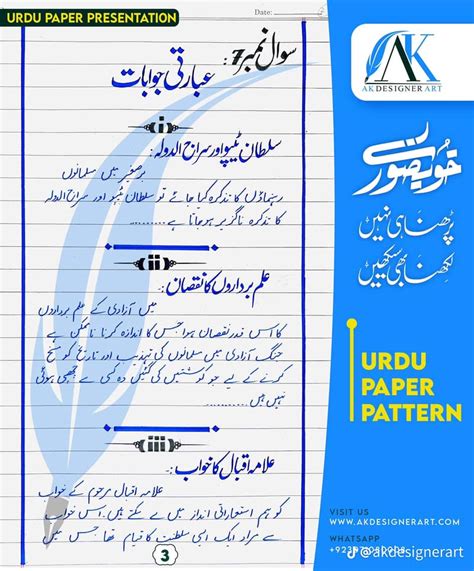 URDU PAPER PRESENTATION
Date:
سوال نمبر 7:
عبارتی جوابات
i
سلطان ٹیپو اور سراج الدولہ:
برصغیر میں مسلمانوں
رہنماؤں کا تذکرہ کیا جائے تو سلطان ٹیپو اور سراج الدولہ
کا تذکرہ ناگزیر ہو جاتا ہے........
ii
علم برداروں کا نقصان:
میں آزادی کے علم برداروں
کا اس قدر نقصان ہوا جس کا اندازہ کرنا ناممکن ہے
جنگ آزادی میں مسلمانوں کی تہذیب اور تاریخ کو مسخ
کرنے کے لیے جو کوششیں کی گئیں وہ کسی سے چھپی ہوئی
نہیں ہیں........
iii
علامہ اقبال کا خواب:
علامہ اقبال مرحوم کے خواب
کو ہم استعاراتی انداز میں لے سکتے ہیں۔ اس خواب
سے مراد ایک ایسی سلطنت کا قیام تھا جس میں
3
AK
AK DESIGNER ART
خوبصورتی سے
پڑھنا ہی نہیں
لکھنا بھی سکھیں
URDU
PAPER
PATTERN
VISIT US
WWW.AKDESIGNERART.COM
WHATSAPP
@akdesignerart